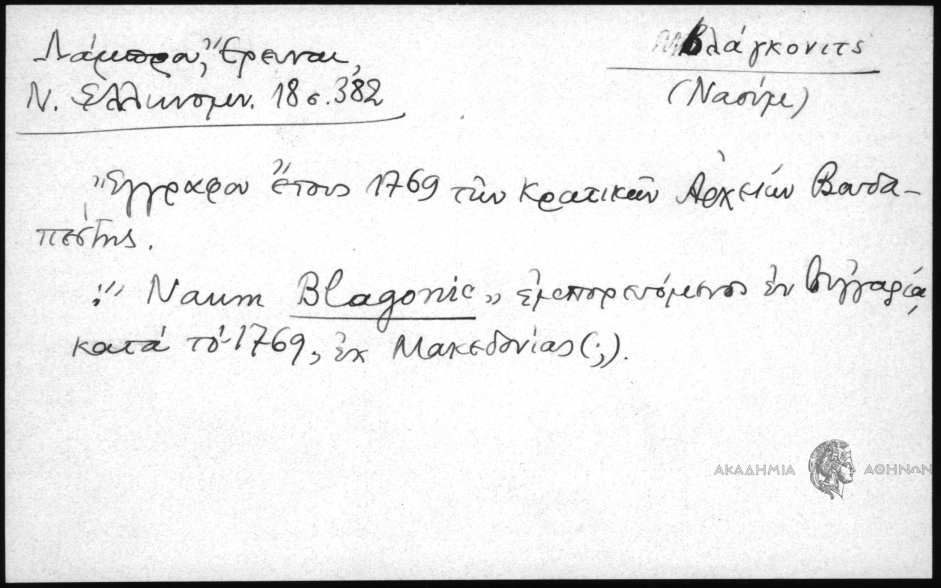 Λάμπρου, Ἔρευναι,
Ν. Ἑλληνομν. 18 σ. 382
Βλάγκονιτς
(Ναούμ)
Ἔγγραφον ἔτους 1769 τῶν κρατικῶν Ἀρχείων Βουδα-
πέστης.
"Naum Blagonic„ ἐμπορευόμενος ἐν Οὑγγαρίᾳ
κατὰ τὸ 1769, ἐκ Μακεδονίας (;).
ΑΚΑΔΗΜΙΑ ΑΘΗΝΩΝ